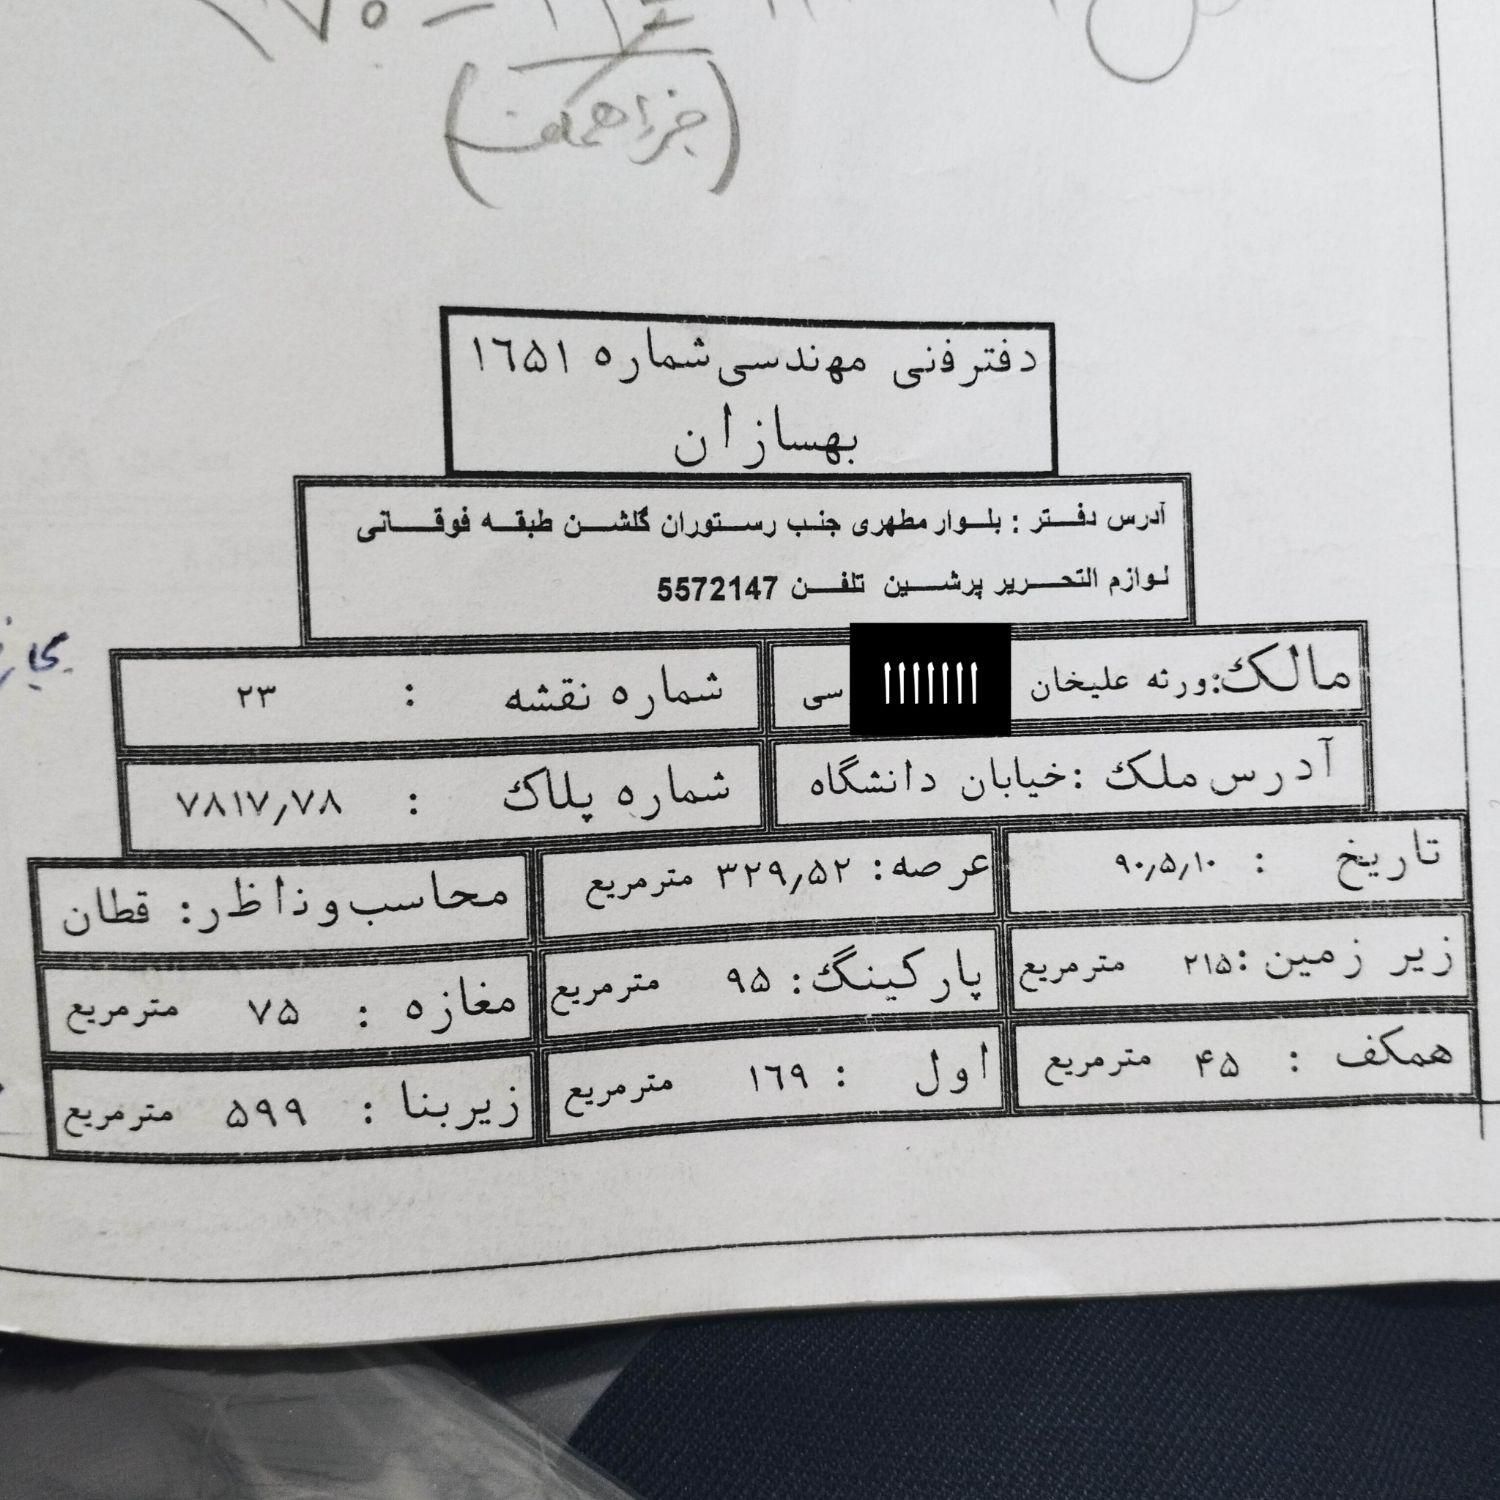 (جزء همکف)
دفتر فنی مهندسی شماره ۱٦۵۱
بهسازان
آدرس دفـــتر : بلـوار مطهری جنـب رسـتوران گلشـــن طبقـــه فوقــــانی
لـوازم التحـــریر پرشـــین تلفـــن 5572147
مالک:ورثه علیخان سی
شماره نقشه : ۲۳
آدرس ملک :خیابان دانشگاه
شماره پلاک : ۷۸۱۷٫۷۸
تاریخ : ۹۰٫۵٫۱۰
عرصه: ۳۲۹٫۵۲ مترمربع
محاسب وناظر: قطان
زیر زمین:۲۱۵ مترمربع
پارکینگ: ۹۵ مترمربع
مغازه : ۷۵ مترمربع
همکف : ۴۵ مترمربع
اول : ۱٦۹ مترمربع
زیربنا : ۵۹۹ مترمربع